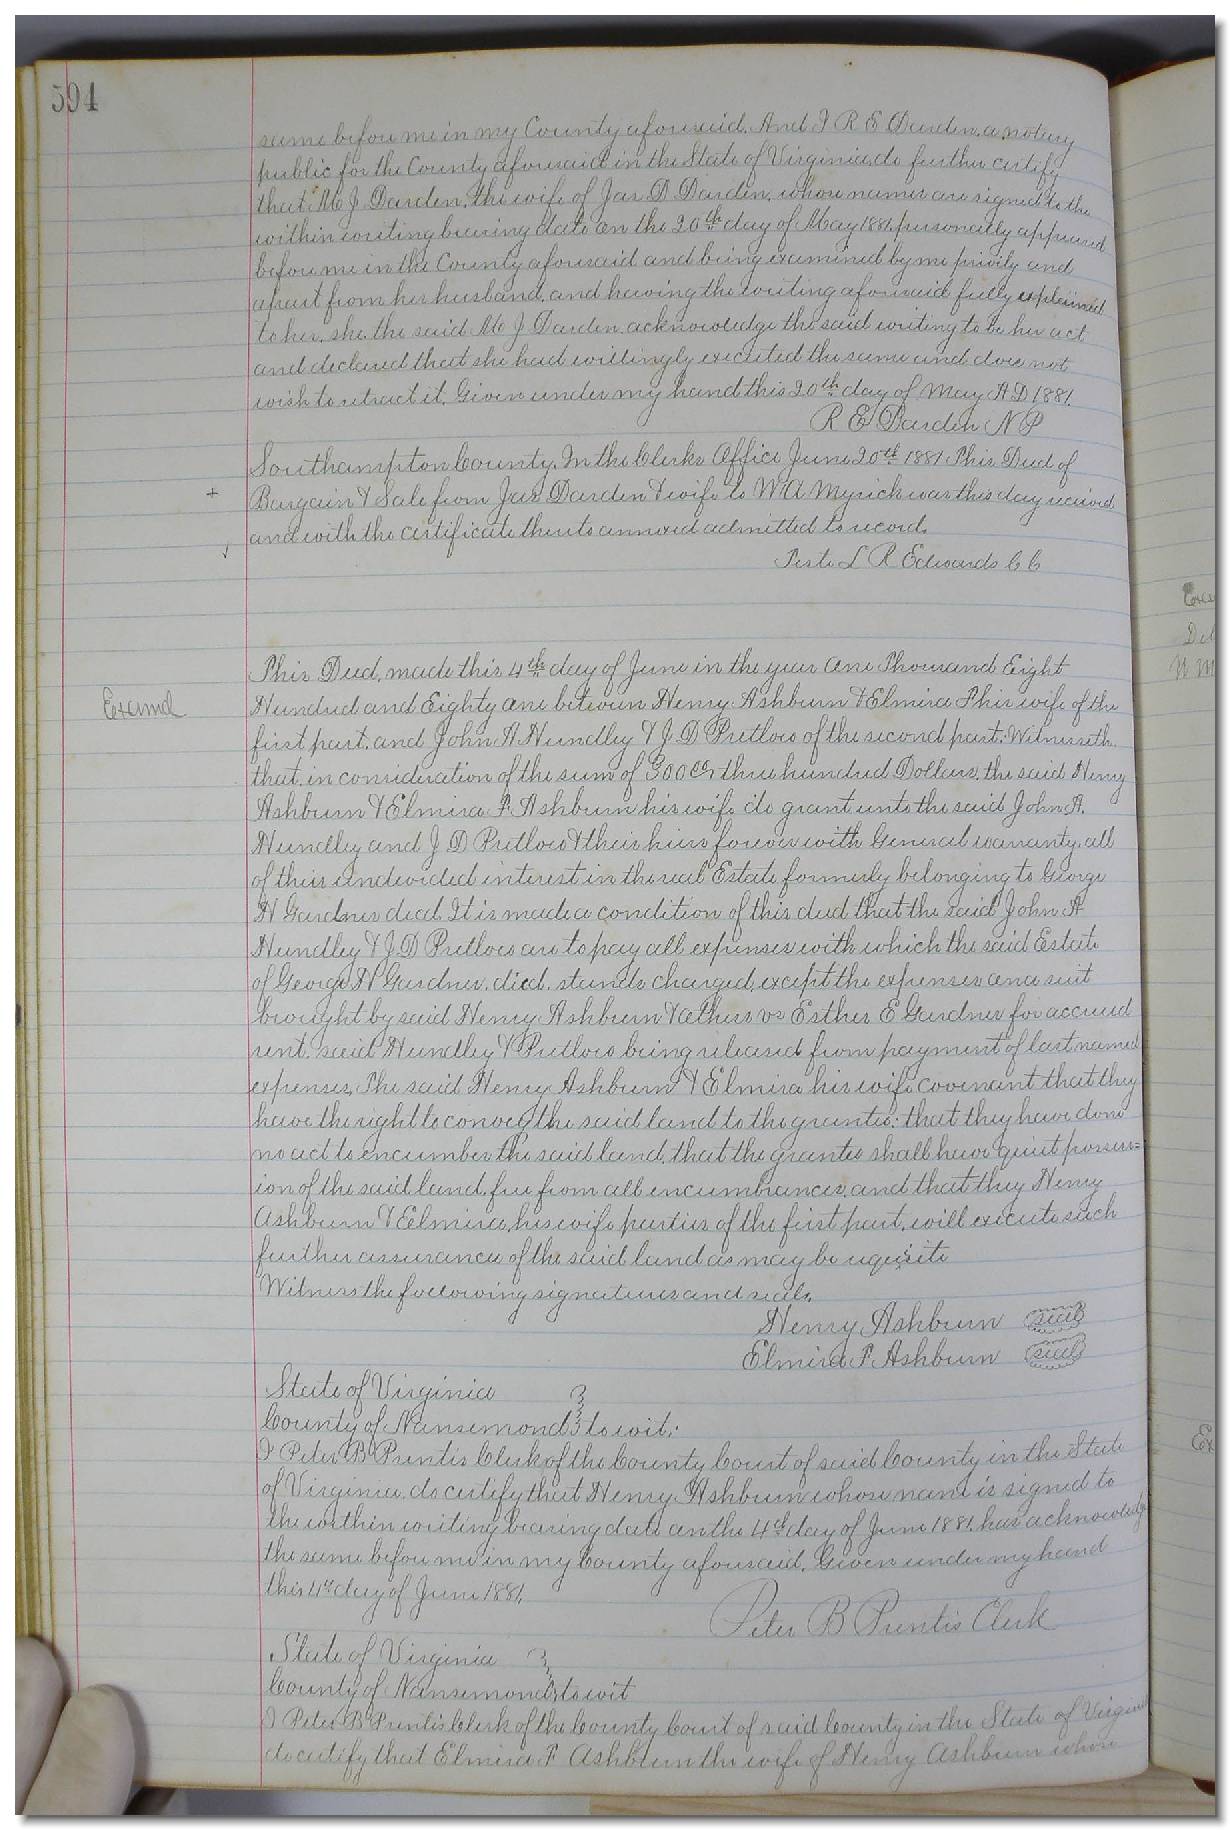 594
same before me in my County aforesaid. And I R E Darden, a notary
public for the County aforesaid in the State of Virginia, do further certify
that M J Darden, the wife of Jas D Darden, whose names are signed to the
within writing bearing date on the 20th day of May 1881, personally appeared
before me in the County aforesaid and being examined by me privily and
apart from her husband, and having the writing aforesaid fully explained
to her, she the said M J Darden acknowledge the said writing to be her act
and declared that she had willingly executed the same and does not
wish to retract it. Given under my hand this 20th day of May A D 1881.
R E Darden N P
Southampton County. In the Clerks Office June 20th 1881 This Deed of
+ Bargain & Sale from Jas Darden & wife to W A Myrick was this day received
and with the certificate thereto annexed admitted to record.
Teste L R Edwards C C
This Deed, made this 4th day of June in the year One Thousand Eight
Examd
Hundred and Eighty one between Henry Ashburn & Elmira F his wife of the
first part, and John A Hundley & J. D Pretlow of the second part: Witnesseth
that, in consideration of the sum of 300 three hundred Dollars, the said Henry
Ashburn & Elmira F. Ashburn his wife do grant unto the said John A.
Hundley and J D Pretlow & their heirs forever with General warranty, all
of their undevided interest in the real Estate formerly belonging to George
H Gardner decd. It is made a condition of this deed that the said John A
Hundley & J. D Pretlow are to pay all expenses with which the said Estate
of George H Gardner, decd, stands charged, except the expenses one suit
brought by said Henry Ashburn & others vs Esther E Gardner for accrued
rent, said Hundley & Pretlow being released from payment of last named
expenses, The said Henry Ashburn & Elmira his wife covenant that they
have the right to convey the said land to the grantee; that they have done
no act to encumber the said land, that the grantee shall have quiet possess=
ion of the said land, free from all encumbrances, and that they Henry
Ashburn & Eelmira, his wife parties of the first part, will execute such
further assurance of the said land as may be requisite
Witness the following signatures and seals.
Henry Ashburn seal
Elmira F. Ashburn seal
State of Virginia
County of Nansemond to wit:
I Peter B Prentis Clerk of the County Court of said County in the State
of Virginia, do certify that Henry Ashburn whose name is signed to
the within writing bearing date on the 4th day of June 1881, has acknowledge
the same before me in my County aforesaid. Given under my hand
this 4th day of June 1881.
Peter B Prentis Clerk
State of Virginia
County of Nansemond to wit
I Peter B Prentis Clerk of the County Court of said County in the State of Virginia
do certify that Elmira F Ashburn the wife of Henry Ashburn whose